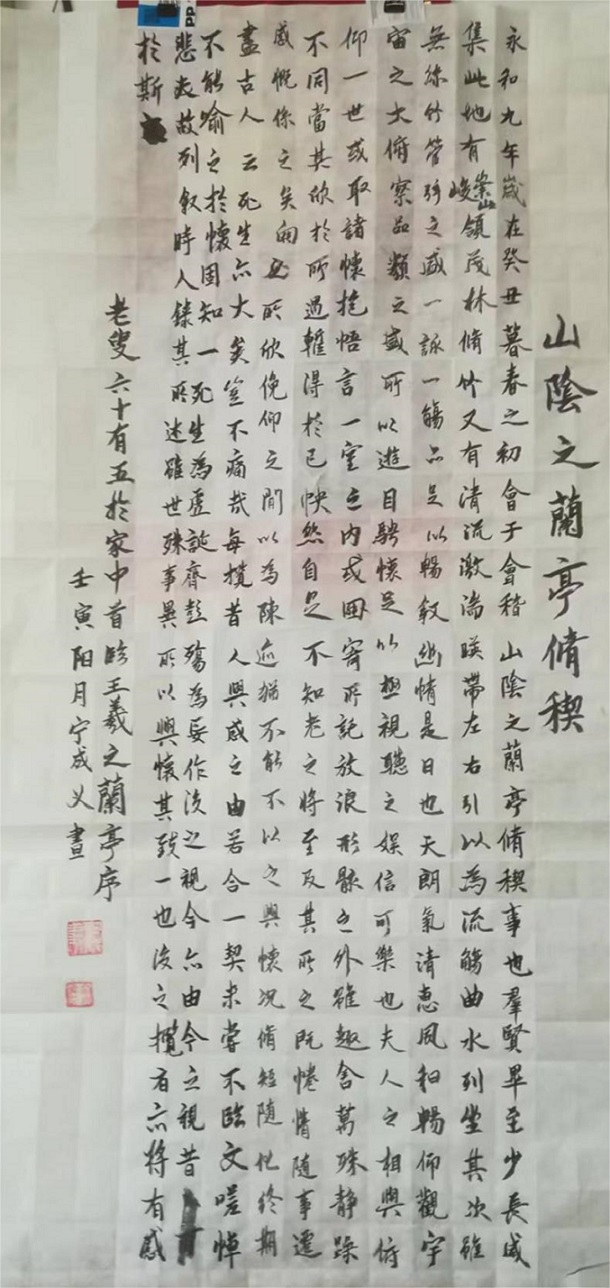 山陰之蘭亭脩稧
永和九年歲在癸丑暮春之初會于會稽山陰之蘭亭脩稧事也羣賢畢至少長咸
集此地有崇山峻領茂林脩竹又有清流激湍暎帶左右引以為流觴曲水列坐其次雖
無絲竹管弦之盛一詠一觴亦足以暢叙幽情是日也天朗氣清惠風和暢仰觀宇
宙之大俯察品類之盛所以遊目騁懷足以極視聽之娱信可樂也夫人之相與俯
仰一世或取諸懷抱悟言一室之内或因寄所託放浪形骸之外雖趣舍萬殊静躁
不同當其欣於所遇暫得於己怏然自足不知老之將至及其所之既惓情隨事遷
感慨係之矣向之所欣俛仰之閒以為陳迹猶不能不以之興懷况脩短隨化終期
盡古人云死生亦大矣豈不痛哉每攬昔人興感之由若合一契未嘗不臨文嗟悼
不能喻之於懷固知一死生為虚誕齊彭殤為妄作後之視今亦由今之視昔
悲夫故列叙時人錄其所述雖世殊事異所以興懷其致一也後之攬者亦將有感
於斯
老叟六十有五於家中首臨王羲之蘭亭序
壬寅阳月宁成义書